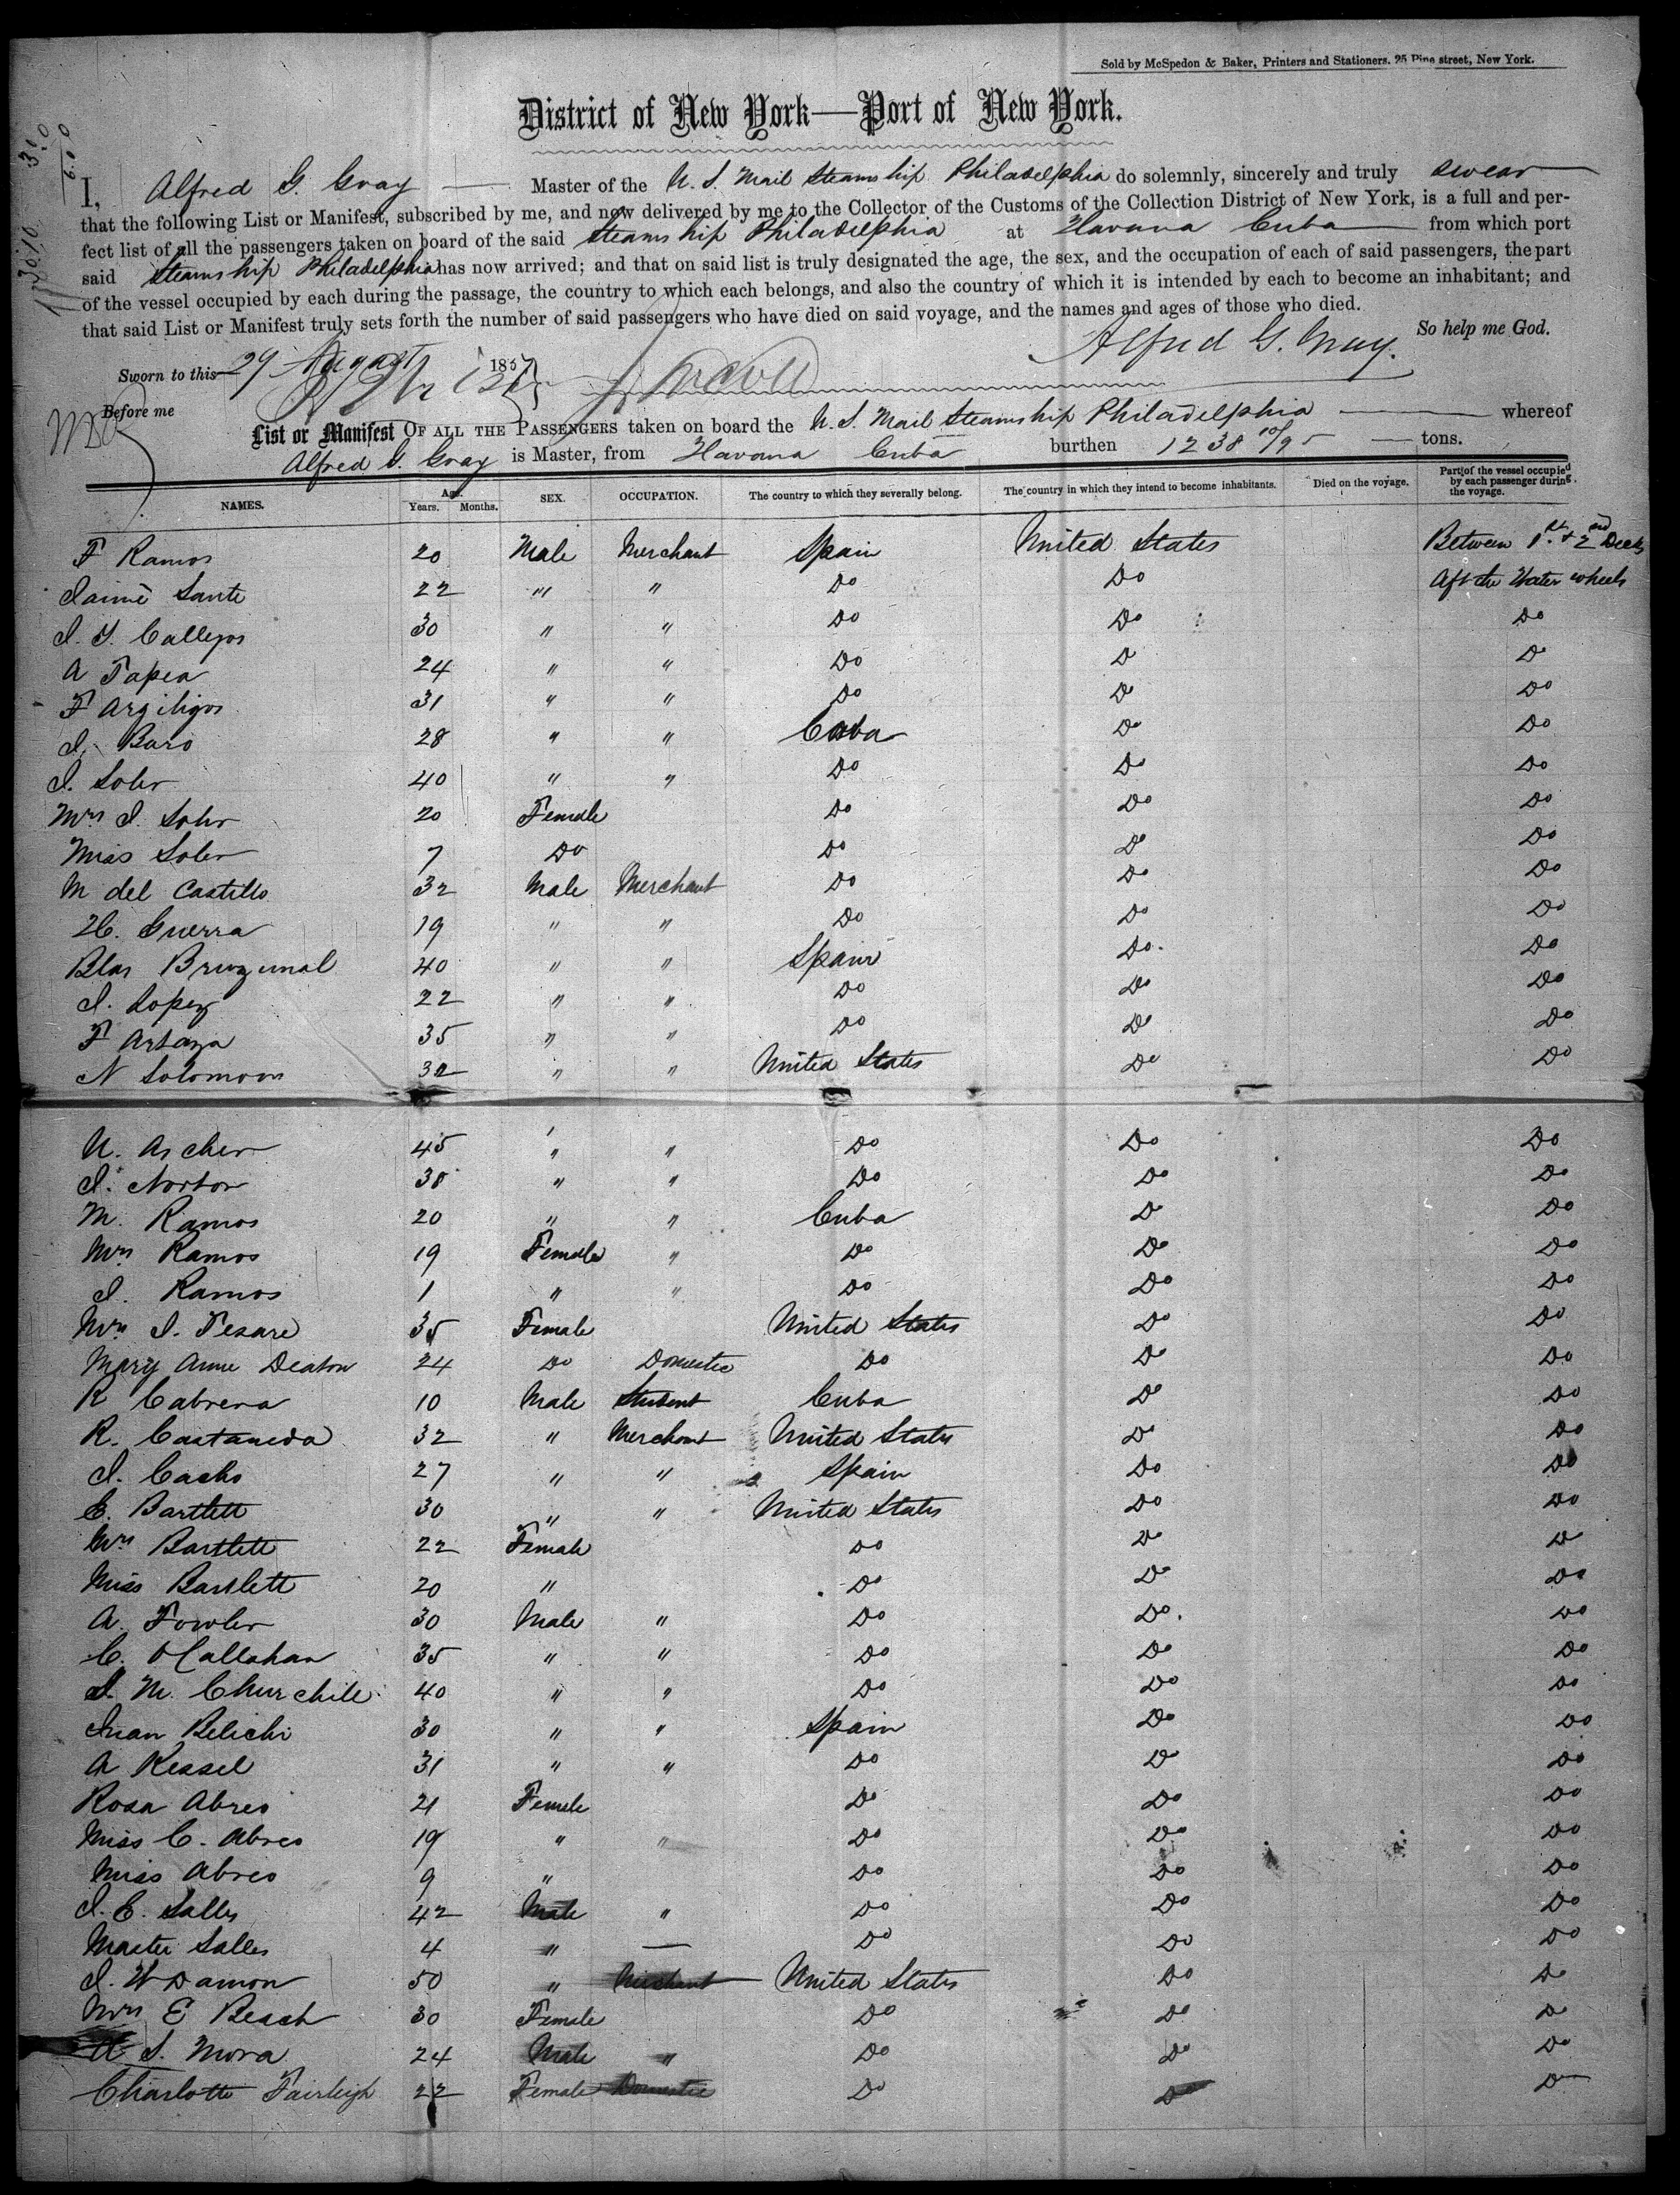 Sold by McSpedon & Baker, Printers and Stationers. 25 Pine street, New York.
District of New York—Port of New York.
I, Alfred G. Gray Master of the U. S. Mail Steamship Philadelphia do solemnly, sincerely and truly swear
that the following List or Manifest, subscribed by me, and now delivered by me to the Collector of the Customs of the Collection District of New York, is a full and per-
fect list of all the passengers taken on board of the said Steamship Philadelphia at Havana Cuba from which port
said Steamship Philadelphia has now arrived; and that on said list is truly designated the age, the sex, and the occupation of each of said passengers, the part
of the vessel occupied by each during the passage, the country to which each belongs, and also the country of which it is intended by each to become an inhabitant; and
that said List or Manifest truly sets forth the number of said passengers who have died on said voyage, and the names and ages of those who died.
So help me God.
Alfred G. Gray.
Sworn to this 29 August 1857
Before me
List or Manifest OF ALL THE PASSENGERS taken on board the U. S. Mail Steamship Philadelphia whereof
Alfred G. Gray is Master, from Havana Cuba burthen 1238 10/95 tons.
NAMES. Age. Years. Months. SEX. OCCUPATION. The country to which they severally belong. The country in which they intend to become inhabitants. Died on the voyage. Part of the vessel occupied by each passenger during the voyage.
F Ramos 20 Male Merchant Spain United States Between 1st & 2nd Decks
Jaime Sante 22 " " Do Do Aft the Water wheels
J. Y. Callejos 30 " " Do Do Do
A Tapea 24 " " Do Do Do
F Argiligos 31 " " Do Do Do
J. Baro 28 " " Cuba Do Do
J. Soler 40 " " Do Do Do
Mrs J. Soler 20 Female Do Do Do
Miss Soler 7 Do Do Do Do
M del Castillo 32 Male Merchant Do Do Do
H. Guerra 19 " " Do Do Do
Blas 40 " " Spain Do. Do
J. Lopez 22 " " Do Do Do
F Artaza 35 " " Do Do Do
N Solomon 32 " " United States Do Do
U. Archer 45 " " Do Do Do
J. Norton 38 " " Do Do Do
M. Ramos 20 " " Cuba Do Do
Mrs Ramos 19 Female " Do Do Do
J. Ramos 1 " " Do Do Do
Mrs J. Tesare 35 Female United States Do Do
Mary Anne Deaton 24 Do Domestic Do Do Do
R Cabrera 10 Male Student Cuba Do Do
R. Castaneda 32 " Merchant United States Do Do
J. Casho 27 " " Spain Do Do
E. Bartlett 30 " " United States Do Do
Mrs Bartlett 22 Female Do Do Do
Miss Bartlett 20 " Do Do Do
A. Fowler 30 Male " Do Do. Do
C. O Callahan 35 " " Do Do Do
J. M. Churchill 40 " " Do Do Do
Juan Belichi 30 " " Spain Do Do
A Kessel 31 " " Do Do Do
Rosa Abreo 21 Female Do Do Do
Miss C. Abreo 19 " " Do Do Do
Miss Abreo 9 " Do Do Do
J. E. Salles 42 Male " Do Do Do
Master Salles 4 " — Do Do Do
J. W Damon 50 " Merchant United States Do Do
Mrs E Beach 30 Female Do Do Do
A S. Mora 24 Male " Do Do Do
Charlotte Fairleigh 22 Female Domestic Do Do Do